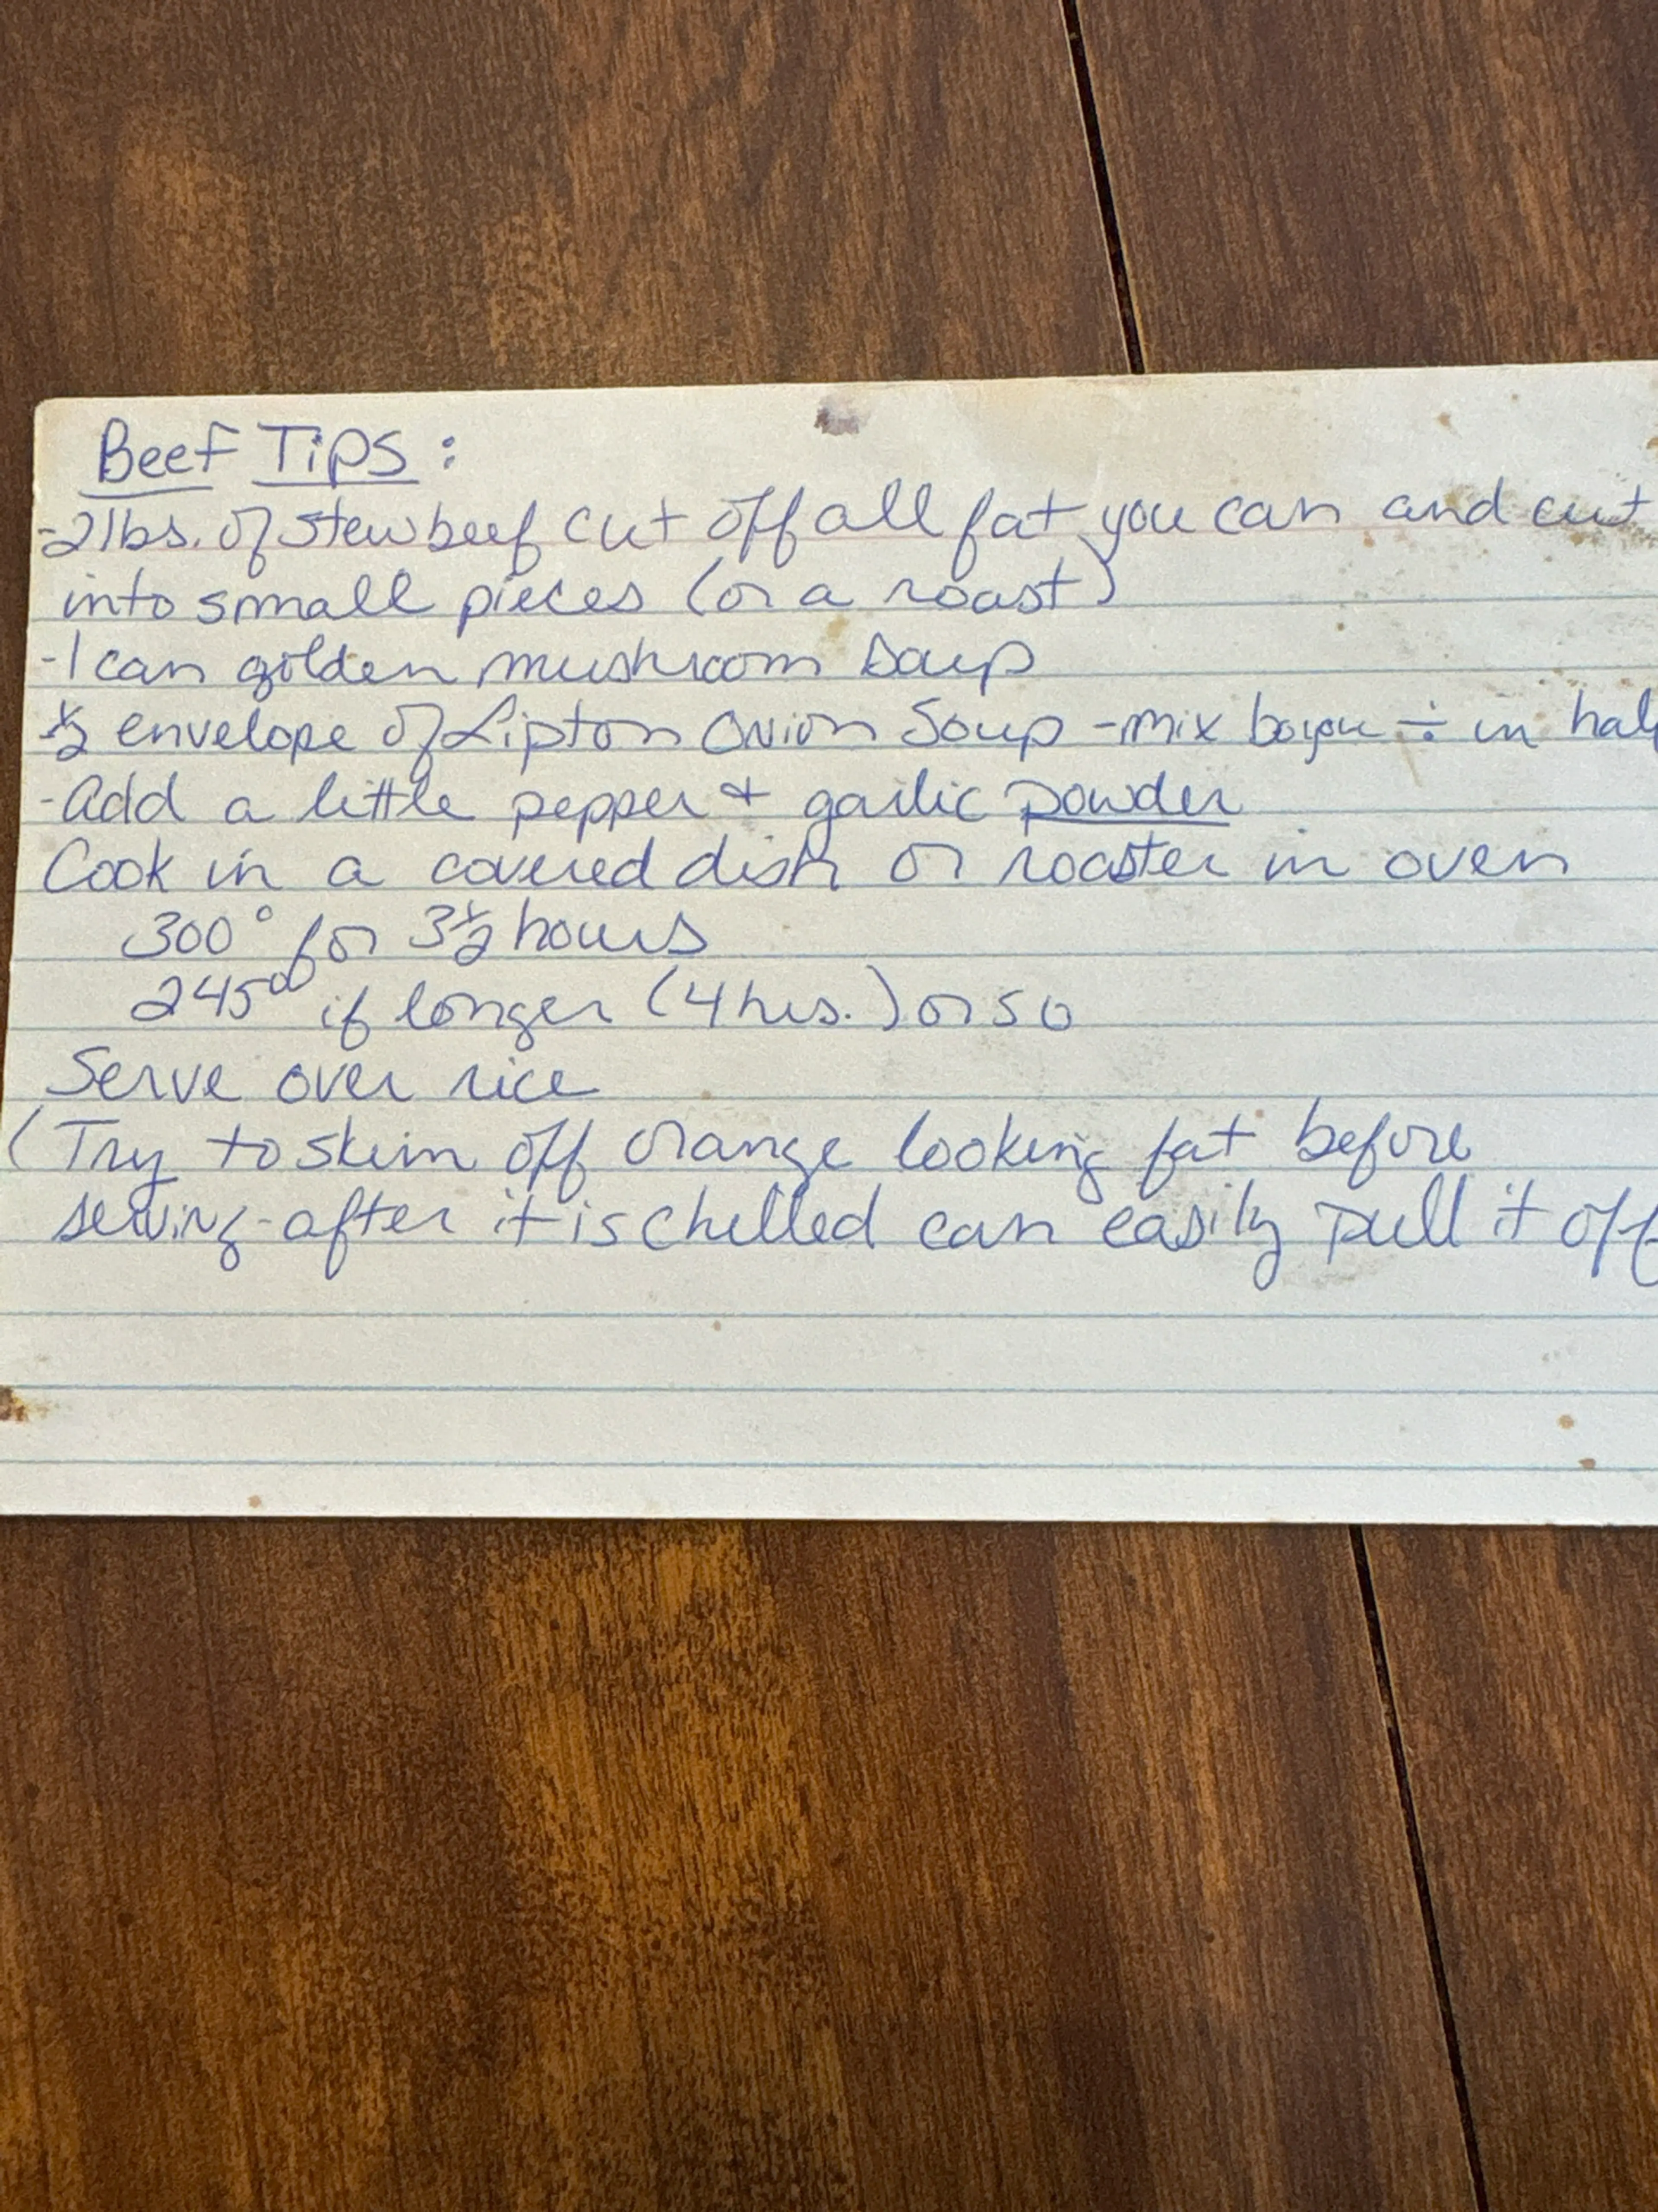 Beef Tips:
-2lbs. of stew beef cut off all fat you can and cut
into small pieces (or a roast)
-1 can golden mushroom soup
½ envelope of Lipton Onion Soup -mix ÷ in half
-Add a little pepper + garlic powder
Cook in a covered dish or roaster in oven
300° for 3½ hours
245° if longer (4 hrs.) or so
Serve over rice
(Try to skim off orange looking fat before
serving-after it is chilled can easily pull it off